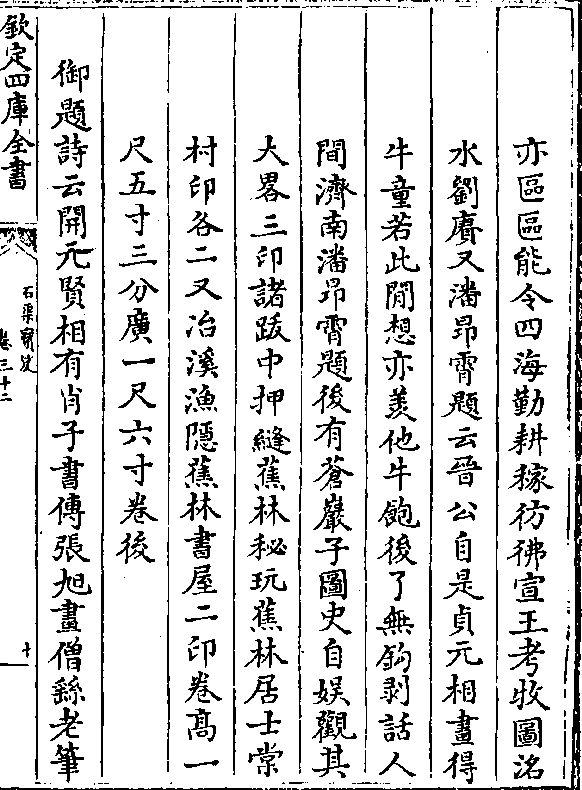 亦區區能令四海勤耕稼彷彿宣王考牧圖洺
水劉賡又潘昂霄題云晉公自是貞元相畫得
牛童若此閒想亦羨他牛飽後了無鈎剥話人
間濟南潘昂霄題後有蒼巖子圖史自娛觀其
大畧三印諸跋中押縫蕉林秘玩蕉林居士棠
村印各二又冶溪漁隱蕉林書屋二印卷高一
尺五寸三分廣一尺六寸卷後
御題詩云開元賢相有肖子書傳張旭畫僧繇老筆
欽定四庫全書
石渠寶笈
卷三十二
十